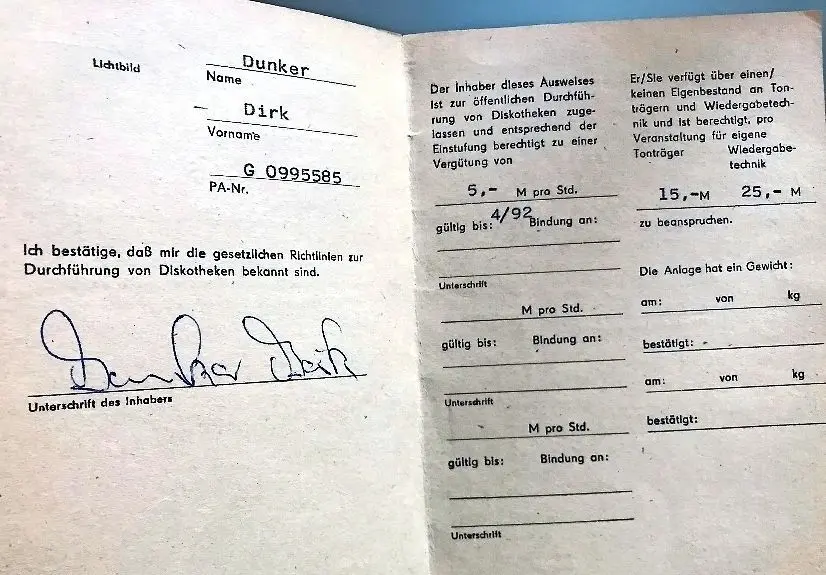 Lichtbild
Dunker
Name
Dirk
Vorname
G 0995585
PA-Nr.
Ich bestätige, daß mir die gesetzlichen Richtlinien zur
Durchführung von Diskotheken bekannt sind.
Dunker Dirk
Unterschrift des Inhabers
Der Inhaber dieses Ausweises
ist zur öffentlichen Durchfüh-
rung von Diskotheken zuge-
lassen und entsprechend der
Einstufung berechtigt zu einer
Vergütung von
5,- M pro Std.
gültig bis: 4/92 Bindung an:
Unterschrift
M pro Std.
gültig bis: Bindung an:
Unterschrift
M pro Std.
gültig bis: Bindung an:
Unterschrift
Er/Sie verfügt über einen/
keinen Eigenbestand an Ton-
trägern und Wiedergabetech-
nik und ist berechtigt, pro
Veranstaltung für eigene
Tonträger Wiedergabe-
technik
15,-M 25,- M
zu beanspruchen.
Die Anlage hat ein Gewicht:
am: von kg
bestätigt:
am: von kg
bestätigt: